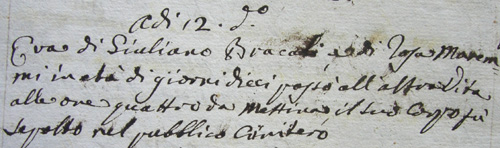 Adi 12. d.º
Eva di Giuliano Bracali e di Rosa Marem
mi in età di giorni dieci passò all'altra Vita
alle ore quattro da mattina il suo Corpo fù
sepolto nel pubblico Cimiterò